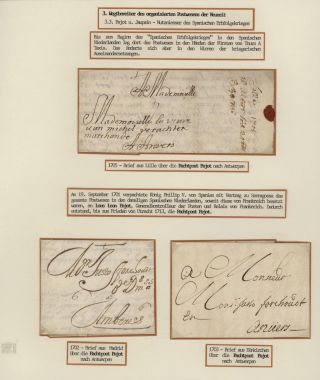 3. Wegbereiter des organisierten Postwesens der Neuzeit
3.3. Pajot u. Jaupain - Nutzniesser des Spanischen Erbfolgekrieges
Bis zum Beginn des "Spanischen Erbfolgekrieges" in den Spanischen
Niederlanden lag dort das Postwesen in den Händen der Fürsten von Thurn &
Taxis. Das änderte sich aber in den Wirren der kriegerischen
Auseinandersetzungen.
A Mademoiselle
Mademoiselle la veuve
jean michel verachter
marchande
A Anvers
1705 - Brief aus Lille über die Pachtpost Pajot nach Antwerpen
Am 19. September 1701 verpachtete König Phillip V. von Spanien mit Vertrag zu Sarragossa das
gesamte Postwesen in den damaligen Spanischen Niederlanden, soweit diese von Frankreich besetzt
waren, an Leon Pajot, Generalkontrolleur der Posten und Relais von Frankreich. Dadurch
entstand, bis zum Frieden von Utrecht 1713, die Pachtpost Pajot.
Amberes
1702 - Brief aus Madrid
über die Pachtpost Pajot
nach Antwerpen
A Monsieur
Monsieur
En
Anvers
1703 - Brief aus Dünkirchen
über die Pachtpost Pajot
nach Antwerpen